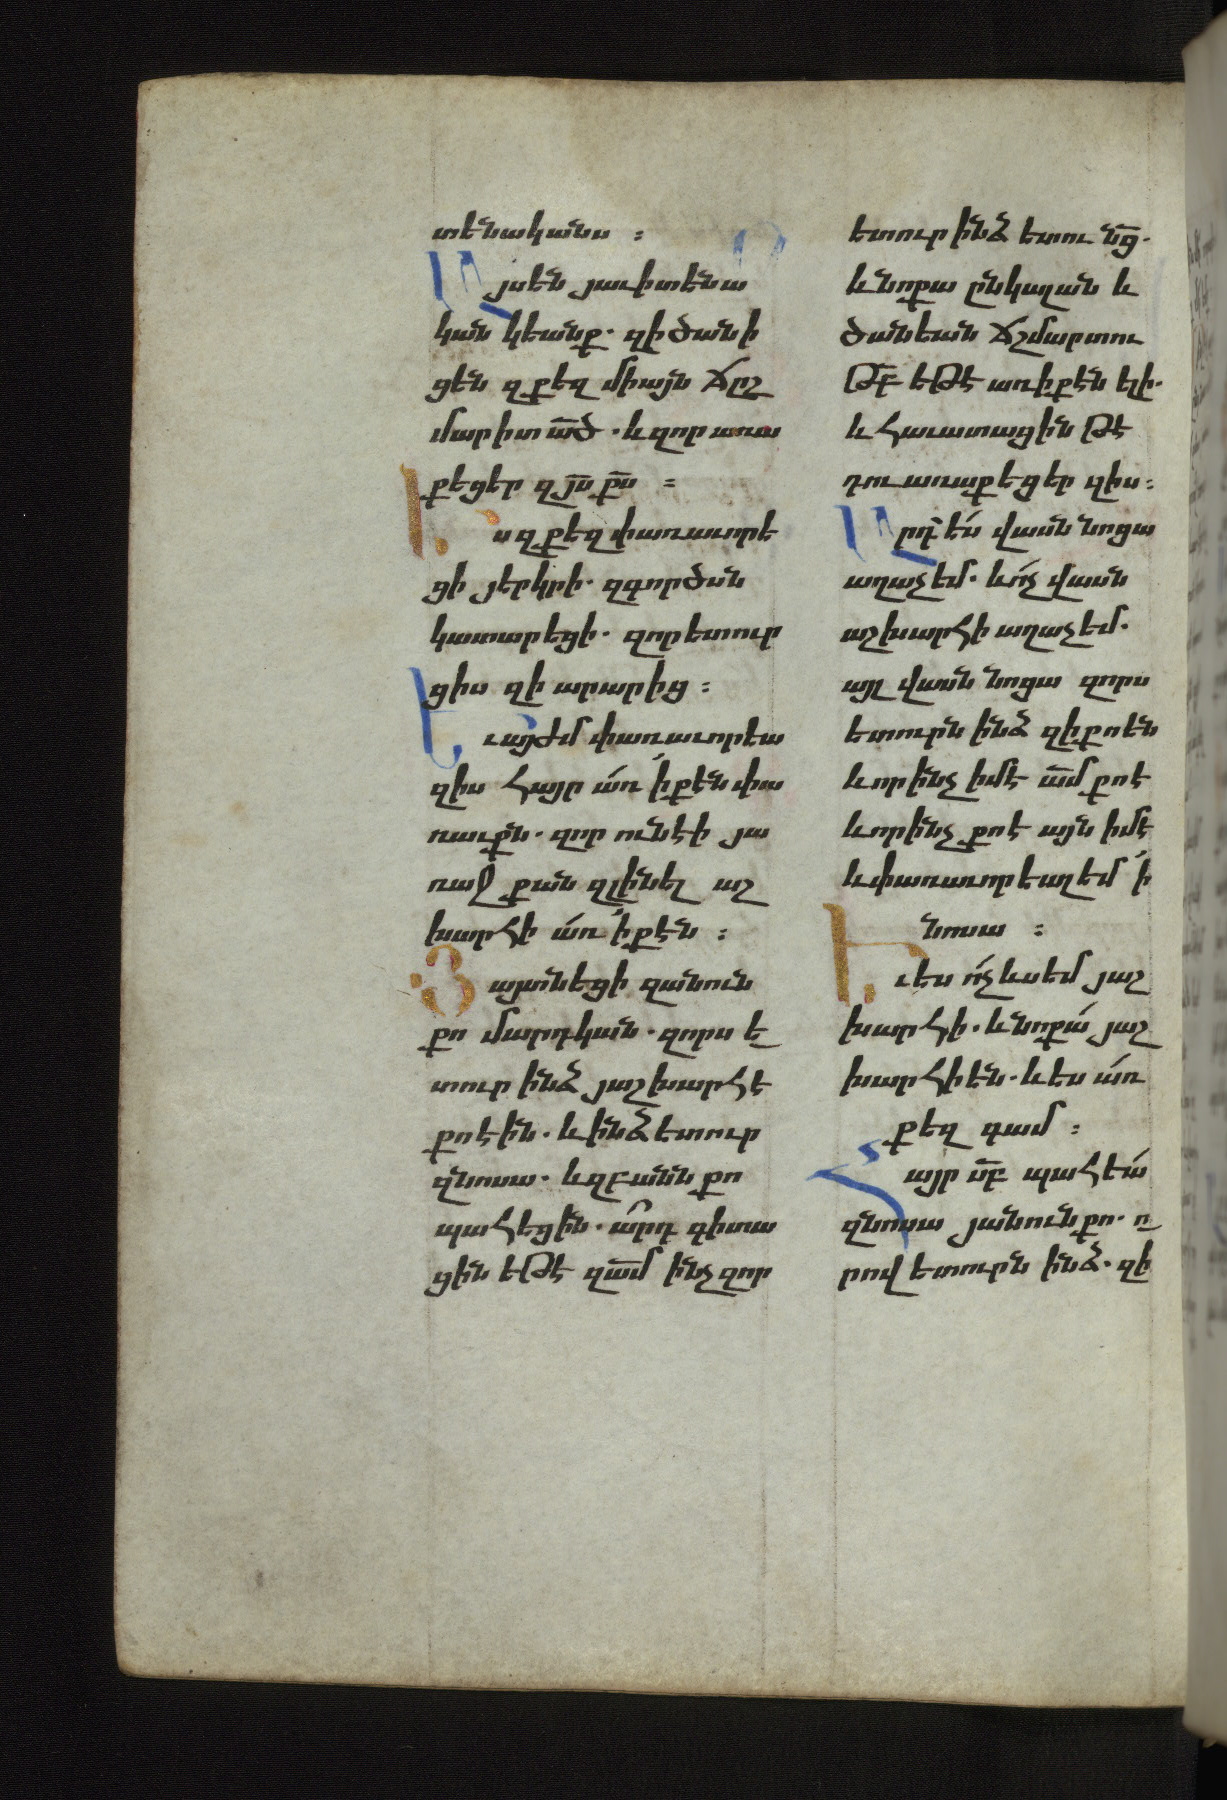 տենականս ։
Այսեն յաւիտենա
կան կեանք. զի ծանի
ցեն զքեզ միայն ճըշ
մարիտ ած. և զոր առա
քեցեր զյս քս ։
Ես զքեզ փառաւորե
ցի յերկրի. զգործն
կատարեցի. զոր ետուր
ցիս զի արարից ։
Եւ այժմ փառաւորեա
զիս հայր առ ի քէն փա
ռաւքն. զոր ունէի յա
ռաջ քան զլինել աշ
խարհի առ ի քէն ։
Յայտնեցի զանուն
քո մարդկան. զորս ե
տուր ինձ յաշխարհէ
քո էին. և ինձ ետուր
զնոսա. և զբանն քո
պահեցին. արդ գիտա
ցին եթէ զամ ինչ զոր
ետուր ինձ ետու նց.
և նոքա ընկալան և
ծանեան ճշմարտու
թբ եթէ առ ի քէն ելի.
և հաւատացին թէ
դու առաքեցեր զիս ։
Արդ ես վասն նոցա
աղաչեմ. և ոչ վասն
աշխարհի աղաչեմ.
այլ վասն նոցա զորս
ետուրն ինձ զի քո են
և որ ինչ իմ է ամ քո է
և որ ինչ քո է այն իմ է
և փառաւորեալ եմ ի
նոսա ։
Եւ ես ոչ ևս եմ յաշ
խարհի. և նոքա յաշ
խարհի են. և ես առ
քեզ գամ ։
Հայր սբ պահեա
զնոսա յանուն քո. ո
րով ետուրն ինձ. զի